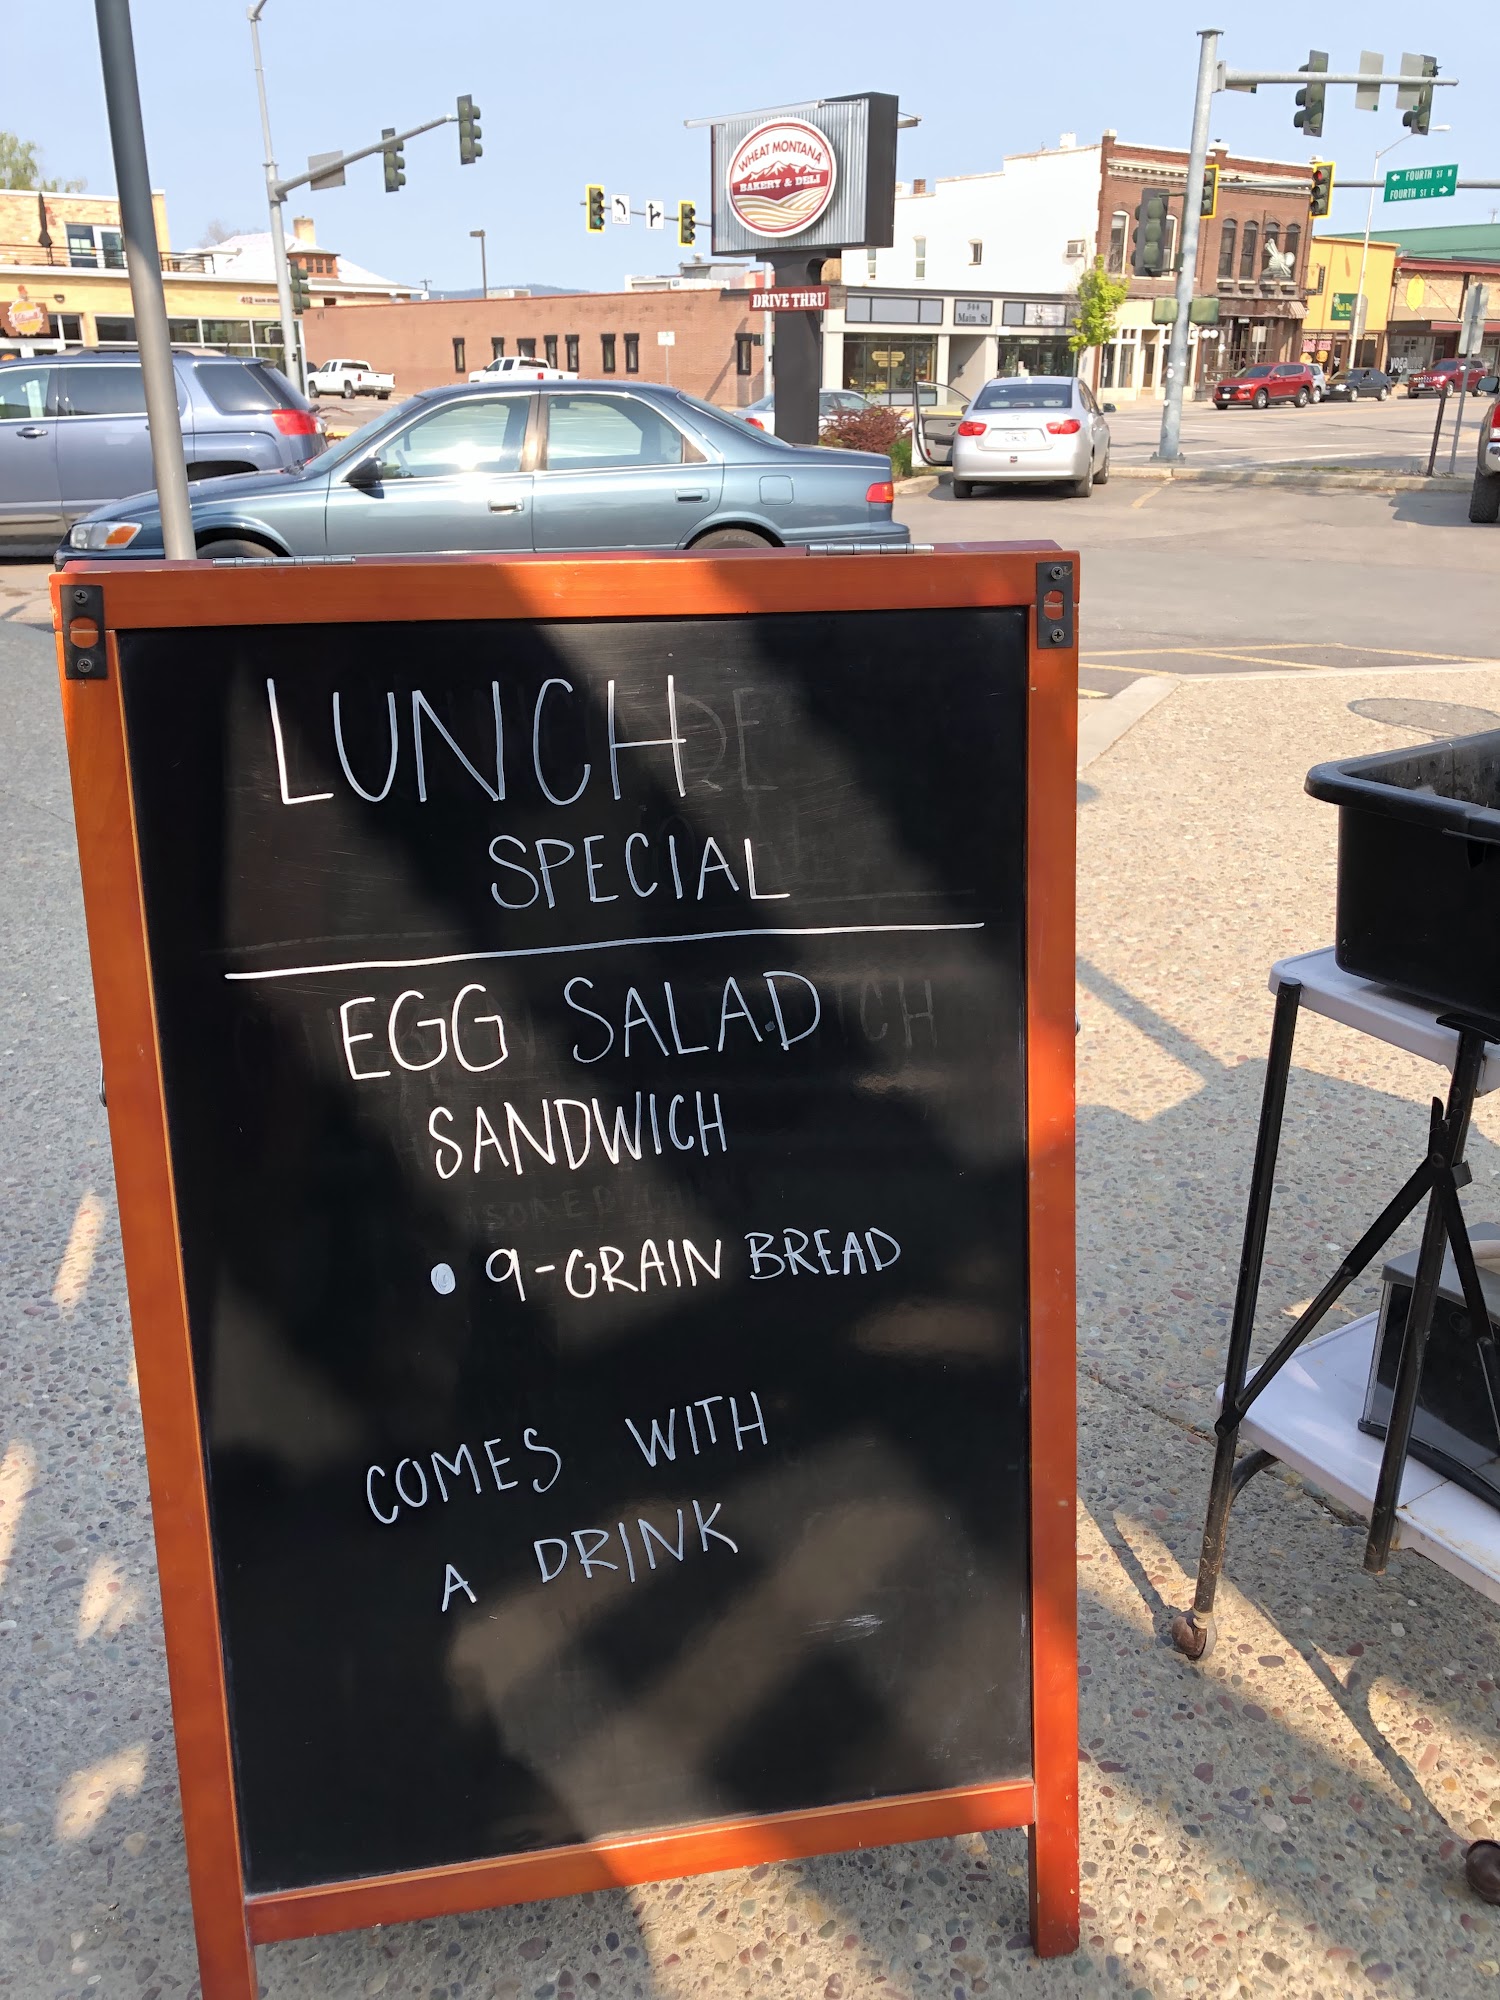 WHEAT MONTANA
BAKERY & DELI
DRIVE THRU
ONLY
FOURTH ST W
FOURTH ST E
412 MAIN STREET
344
Main St
yoga
LUNCH
SPECIAL
EGG SALAD
SANDWICH
• 9-GRAIN BREAD
COMES WITH
A DRINK